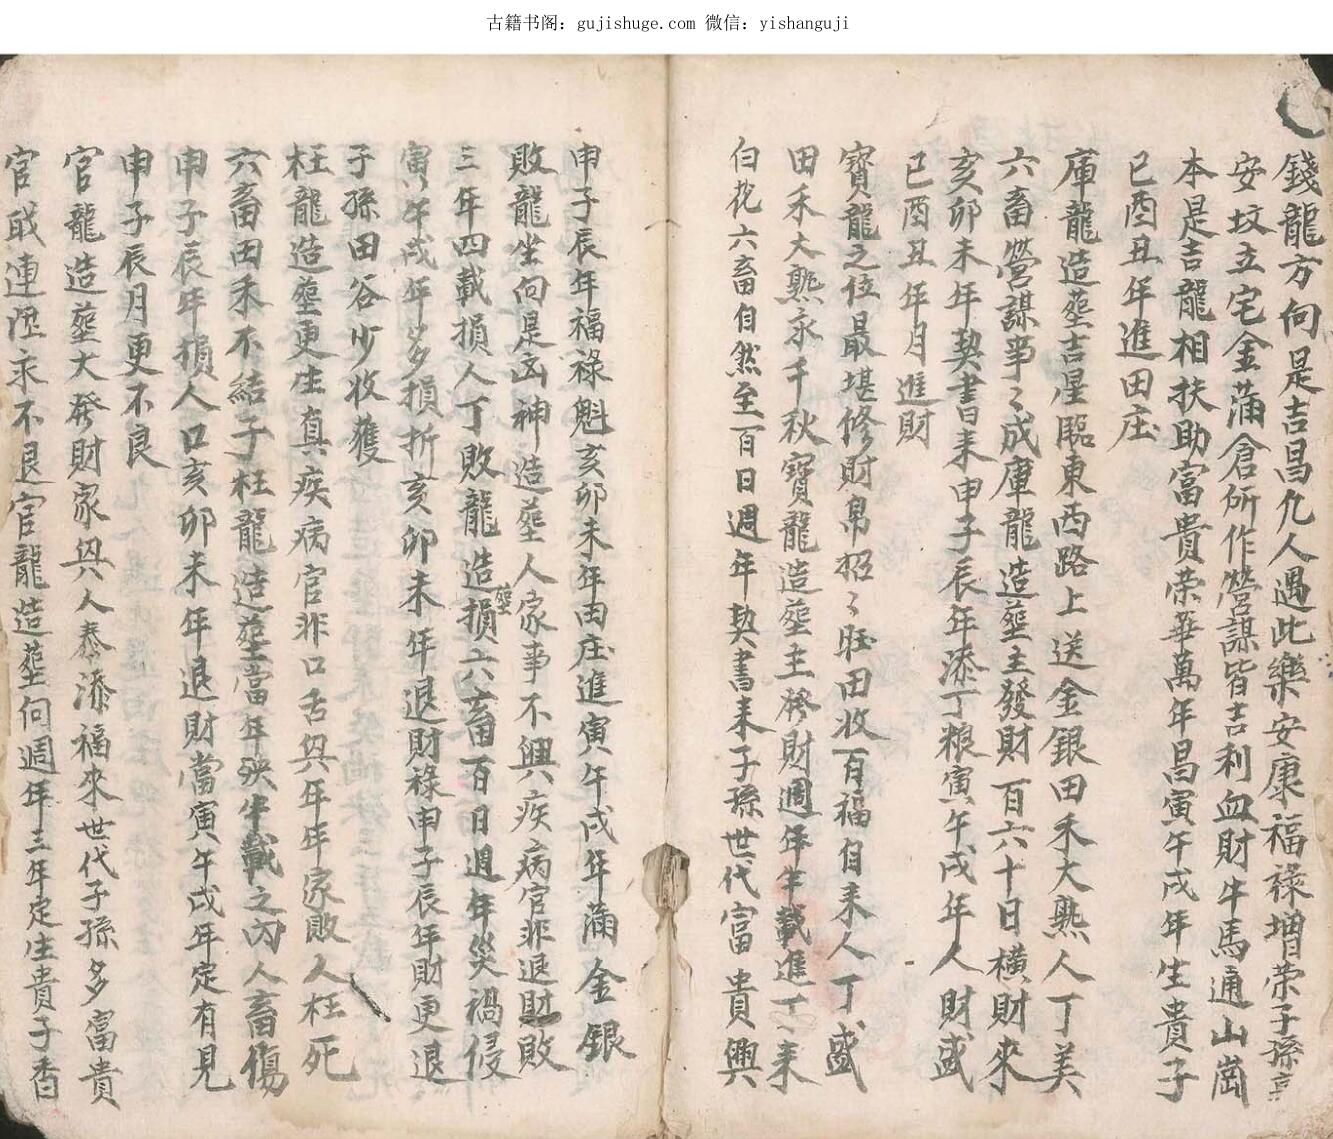 古籍书阁：gujishuge.com 微信：yishanguji
錢龍方向是吉昌凢人遇此樂安康福禄增荣子孫
安坟立宅金蒲倉所作營謀皆吉利血財牛馬通山崗
本是吉龍相扶助富貴荣華萬年昌寅午戌年生貴子
巳酉丑年進田庄
庫龍造塟吉星臨東西路上送金銀田禾大熟人丁美
六畜營謀事〻成庫龍造塟主發財百六十日横財來
亥卯未年契書来申子辰年添丁粮寅午戌年人財盛
巳酉丑年月進財
寳龍之位最堪修財帛招〻旺田收百福自来人丁盛
田禾大熟永千秋寳龍造塟主發財週年半載進丁来
白花六畜自然至一百日週年契書来子孫世代富貴興
申子辰年福禄魁亥卯未年田庄進寅午戌年滿金銀
敗龍坐向是凶神造塟人家事不興疾病官非退財敗
三年四載損人丁敗龍造塟損六畜百日週年災禍侵
寅午戌年多損折亥卯未年退財禄申子辰年財更退
子孫田谷少收獲
枉龍造塟更生真疾病官非口舌興年年家敗人枉死
六畜田禾不結子枉龍造塟當年殃半載之内人畜傷
申子辰年損人口亥卯未年退財當寅午戌年定有見
申子辰月更不良
官龍造塟大發財家興人泰添福來世代子孫多富貴
官職連陞永不退官龍造塟向週年三年定生貴子香